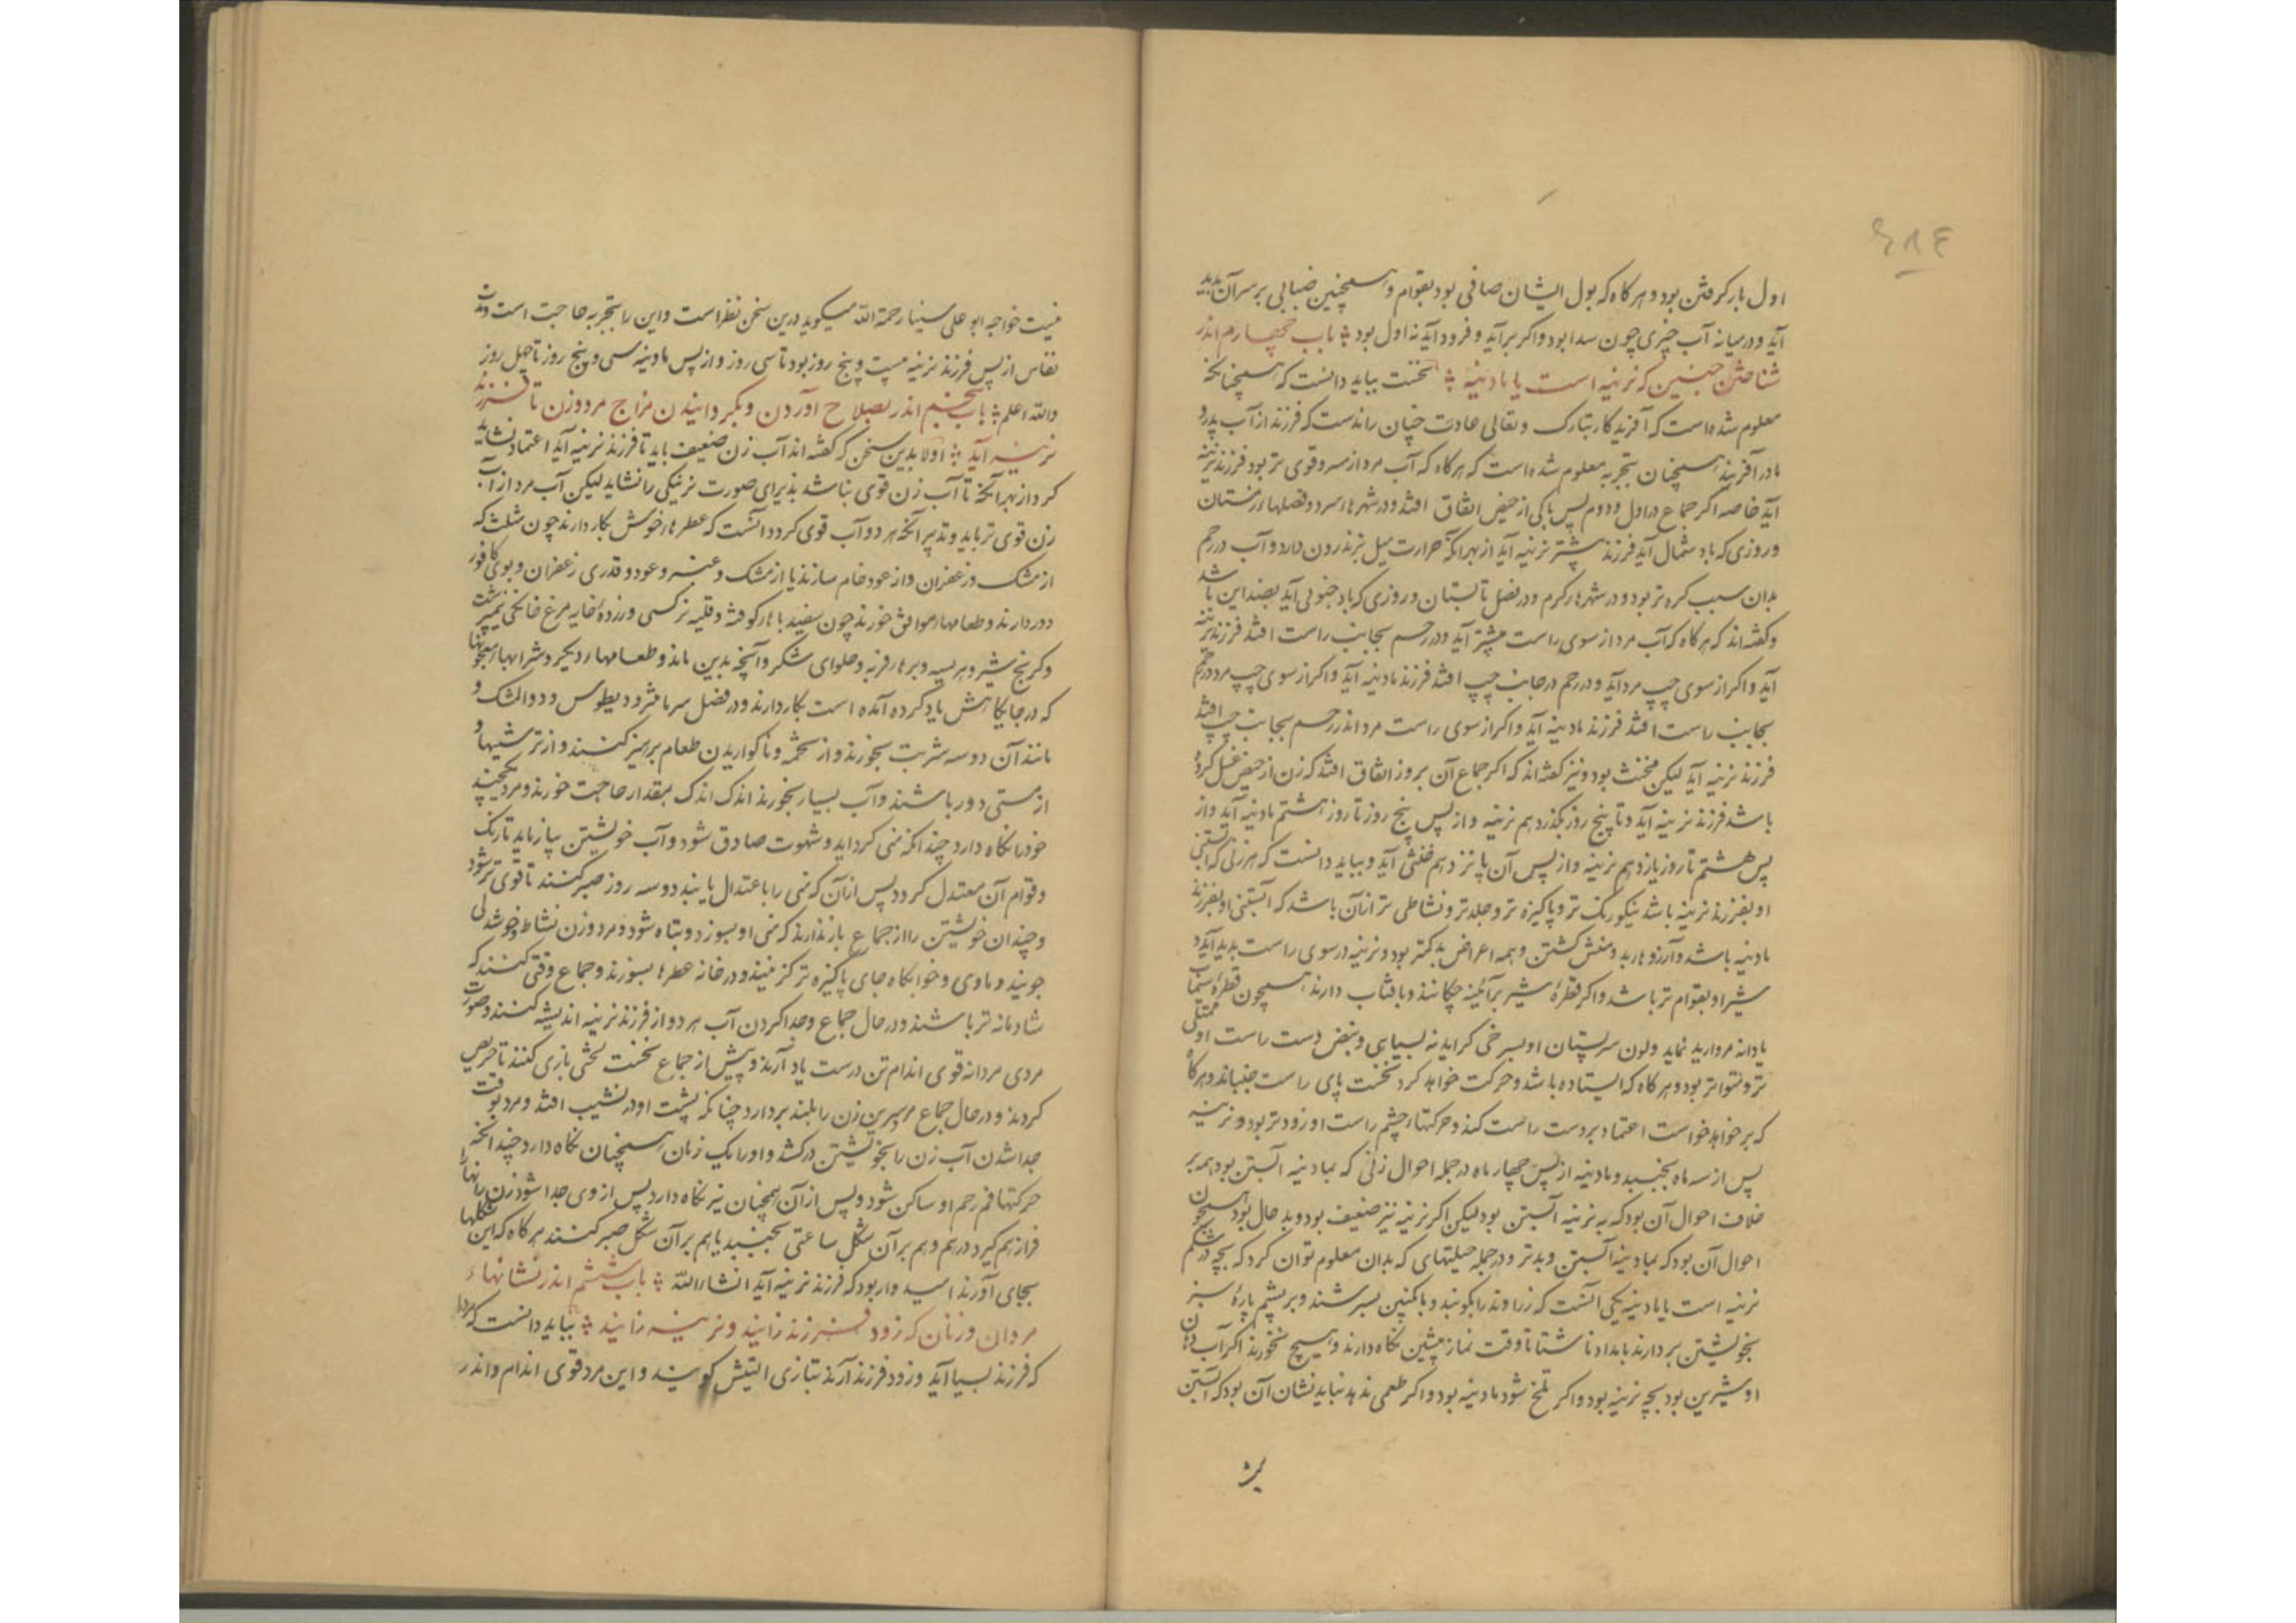 ۴۸۴
اول بار گرفتن بود و هرگاه که بول ایشان صافی بود بقوام و همچنین ضبابی بر سر آن پدید
آید و در میانه آب چیزی چون سدا بود و اکر برآید و فرود آید نه اول بود ؛ باب چهارم اندر
شناختن جنین که نرینه است یا مادینه ؛ نخست بباید دانست که همچنانکه
معلوم شده است که آفریدکار تبارک و تعالی عادت چنان راندست که فرزند از آب پدر و
مادر آفریند همچنان بتجربه معلوم شده است که هرکاه که آب مرد از مرد قوی تر بود فرزند نرینه
آید خاصه اکر جماع در اول و دوم پس پاکی از حیض اتفاق افتد و در شهرهاء سرد و فصلهاء زمستان
و روزی که باد شمال آید فرزند بیشتر نرینه آید از بهر آنکه حرارت میل بزندرون دارد و آب در رحم
بدان سبب کرم تر بود و در شهرهاء کرم و در فصل تابستان و روزی که باد جنوبی آید بضد این باشد
و کفته اند که هرکاه که آب مرد از سوی راست بیشتر آید و در رحم بجانب راست افتد فرزند نرینه
آید و اکر از سوی چپ مرد آید و در رحم در جانب چپ افتد فرزند مادینه آید و اکر از سوی چپ مرد در رحم
بجانب راست افتد فرزند مادینه آید و اکر از سوی راست مرد اندر رحم بجانب چپ افتد
فرزند نرینه آید لیکن مخنث بود و نیز کفته اند که اکر جماع آن بروز اتفاق افتد که زن از حیض غسل کرده
باشد فرزند نرینه آید و تا پنج روز بگذرد هم نرینه و از پس پنج روز تا روز هشتم مادینه آید و از
پس هشتم تا روز یازدهم نرینه و از پس آن پانزدهم خنثی آید و بباید دانست که هر زنی که آبستنی
او بفرزند نرینه باشد نیکو رنک تر و پاکیزه تر و جلدتر و نشاطی تر از آن باشد که آبستنی او بفرزند
مادینه باشد و آرزوهاء بد و منش کشتن و همه اعراض بد کمتر بود و نرینه در سوی راست پدید آید و
شیر او بقوام تر باشد و اکر قطرهٔ شیر بر آئینه چکانند و بافتاب دارند همچون قطرهٔ سیماب
یا دانه مروارید نماید و لون سر پستان او بسرخی کراید نه بسیاهی و نبض دست راست او ممتلی
تر و متواتر بود و هر کاه که ایستاده باشد و حرکت خواهد کرد نخست پای راست جنباند و هر کاه
که برخواهد خواست اعتماد بر دست راست کند و حرکتهاء چشم راست او زودتر بود و نرینه
پس از سه ماه بجنبد و مادینه از پس چهار ماه در جمله احوال زنی که بمادینه آبستن بود همه بر
خلاف احوال آن بود که به نرینه آبستن بود لیکن اکر نرینه نیز ضعیف بود و بد حال بود همچون
احوال آن بود که بمادینه آبستن و بدتر و در جمله حیلتهای که بدان معلوم توان کرد که بچه در شکم
نرینه است یا مادینه یکی آنست که زراوند را بکوبند و با انکبین بسرشند و بر پشم پارهٔ سبز
بخویشتن بردارند بامداد ناشتا تا وقت نماز پیشین نکاه دارند و هیچ نخورند اکر آب دهان
او شیرین بود بچه نرینه بود و اکر تلخ شود مادینه بود و اکر طعمی ندهد نباید نشان آن بود که آبستن
نیست
نیست خواجه ابو علی سینا رحمة الله میکوید درین سخن نظر است و این را بتجربه حاجت است و مدت
نفاس از پس فرزند نرینه بیست و پنج روز بود تا سی روز و از پس مادینه سی و پنج روز تا چهل روز
والله اعلم ؛ باب پنجم اندر بصلاح آوردن و بگردانیدن مزاج مرد و زن تا فرزند
نرینه آید ؛ اولا بدین سخن که کفته اند آب زن ضعیف باید تا فرزند نرینه آید اعتماد نشاید
کرد از بهر آنکه تا آب زن قوی نباشد پذیرای صورت نرینکی را نشاید لیکن آب مرد از آب
زن قوی تر باید و تدبیر آنکه هر دو آب قوی کردد آنست که عطرهاء خوش بکار دارند چون مثلث که
از مشک و زعفران و از عود خام سازند یا از مشک و عنبر و عود و قدری زعفران و بوی کافور
دور دارند و طعامهاء موافق خورند چون سفید باهاء کوفته و قلیه نرکسی و زردهٔ خایه مرغ خانکی نیمبرشت
و کرنج شیر و هریسه و برهاء فربه و حلوای شکر و آنچه بدین ماند و طعامهاء دیکر و شرابها و معجونها
که در جایکاهش یاد کرده آمده است بکار دارند و در فصل سرما مثرودیطوس و دوا المشک و
مانند آن دو سه شربت بخورند و از تخمه و ناکواریدن طعام پرهیز کنند و از ترشیها و
از مستی دور باشند و آب بسیار نخورند اندک اندک بمقدار حاجت خورند و مرد همچنین
خود را نکاه دارد چندانکه منی کرد آید و شهوت صادق شود و آب خویشتن بیازماید تا رنک
و قوام آن معتدل کردد پس از آن که منی را باعتدال یابند دو سه روز صبر کنند تا قوی تر شود
و چندان خویشتن را از جماع باز ندارند که منی او بسوزد و تباه شود و مرد و زن نشاط و خوشدلی
جویند و ماوی و خوابکاه جای پاکیزه تر کزینند و در خانه عطرها بسوزند و جماع وقتی کنند که
شادمانه تر باشند و در حال جماع و جدا کردن آب هر دو از فرزند نرینه اندیشه کنند و صورت
مردی مردانه قوی اندام تن درست یاد آرند و پیش از جماع نخست لختی بازی کنند تا حریص
کردند و در حال جماع سرین زن را بلند بردارد چنانکه پشت او در نشیب افتد و مرد بوقت
جدا شدن آب زن را بخویشتن درکشد و او را یک زمان همچنان نکاه دارد چندانکه
حرکتها فم رحم او ساکن شود و پس از آن همچنان نیز نکاه دارد پس از وی جدا شود زن رانها را
فراز هم کیرد درهم و هم بر آن شکل ساعتی بخسبد یا هم بر آن شکل صبر کنند هرکاه که این شکلها
بجای آورند امیدوار بود که فرزند نرینه آید انشاءالله ؛ باب ششم اندر نشانهاء
مردان و زنان که زود فرزند زایند و نرینه زایند ؛ بباید دانست که مرد را
که فرزند بسیا آید و زود فرزند آرند بتازی التیش کویند و این مرد قوی اندام و اندر